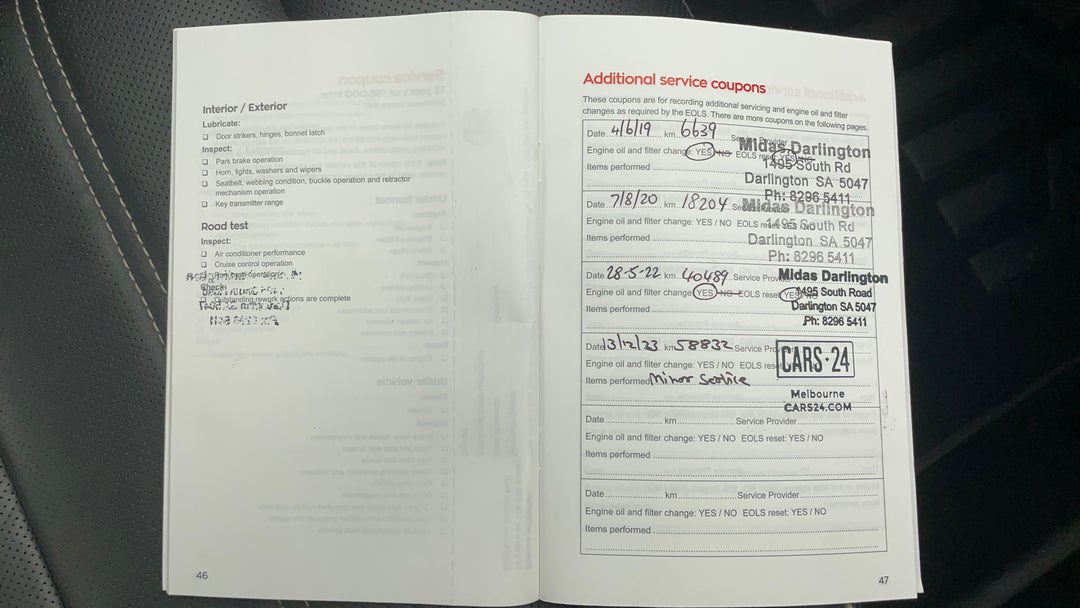 Interior / Exterior
Lubricate:
❑ Door strikers, hinges, bonnet latch
Inspect:
❑ Park brake operation
❑ Horn, lights, washers and wipers
❑ Seatbelt, webbing condition, buckle operation and retractor
mechanism operation
❑ Key transmitter range
Road test
Inspect:
❑ Air conditioner performance
❑ Cruise control operation
Check:
❑ Outstanding rework actions are complete
46
Additional service coupons
These coupons are for recording additional servicing and engine oil and filter
changes as required by the EOLS. There are more coupons on the following pages.
Date 4/6/19 km 6639 Service Provider
Engine oil and filter change: YES / NO EOLS reset: YES / NO
Items performed
Midas Darlington
1495 South Rd
Darlington SA 5047
Ph: 8296 5411
Date 7/8/20 km 18204 Service
Engine oil and filter change: YES / NO EOLS reset: YES / NO
Items performed
Midas Darlington
1495 South Rd
Darlington SA 5047
Ph: 8296 5411
Date 28-5-22 km 40489 Service Provider
Engine oil and filter change: YES / NO EOLS reset: YES / NO
Items performed
Midas Darlington
1495 South Road
Darlington SA 5047
Ph: 8296 5411
Date 13/12/23 km 58832 Service Provider
Engine oil and filter change: YES / NO EOLS reset
Items performed Minor Service
CARS·24
Melbourne
CARS24.COM
Date km Service Provider
Engine oil and filter change: YES / NO EOLS reset: YES / NO
Items performed
Date km Service Provider
Engine oil and filter change: YES / NO EOLS reset: YES / NO
Items performed
47